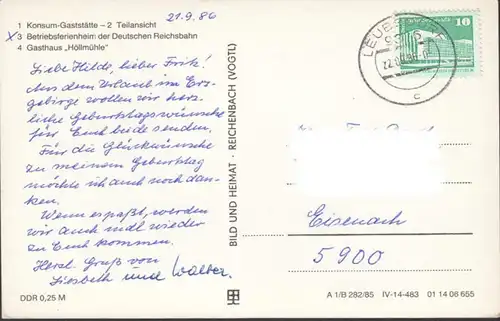 1 Konsum-Gaststätte – 2 Teilansicht
X 3 Betriebsferienheim der Deutschen Reichsbahn
4 Gasthaus „Höllmühle"
21.9.86
Liebe Hilde, lieber Fritz!
Aus dem Urlaub im Erz-
gebirge wollen wir herz-
liche Geburtstagswünsche
für Euch beide senden.
Für die Glückwünsche
zu meinem Geburtstag
möchte ich auch noch dan-
ken.
Wenn es paßt, werden
wir auch mal wieder
zu Euch kommen.
Herzl. Gruß von
Lisbeth und Walter.
DDR 0,25 M
BILD UND HEIMAT · REICHENBACH (VOGTL)
10
c
Eisenach
5900
A 1/B 282/85 IV-14-483 01 14 06 655